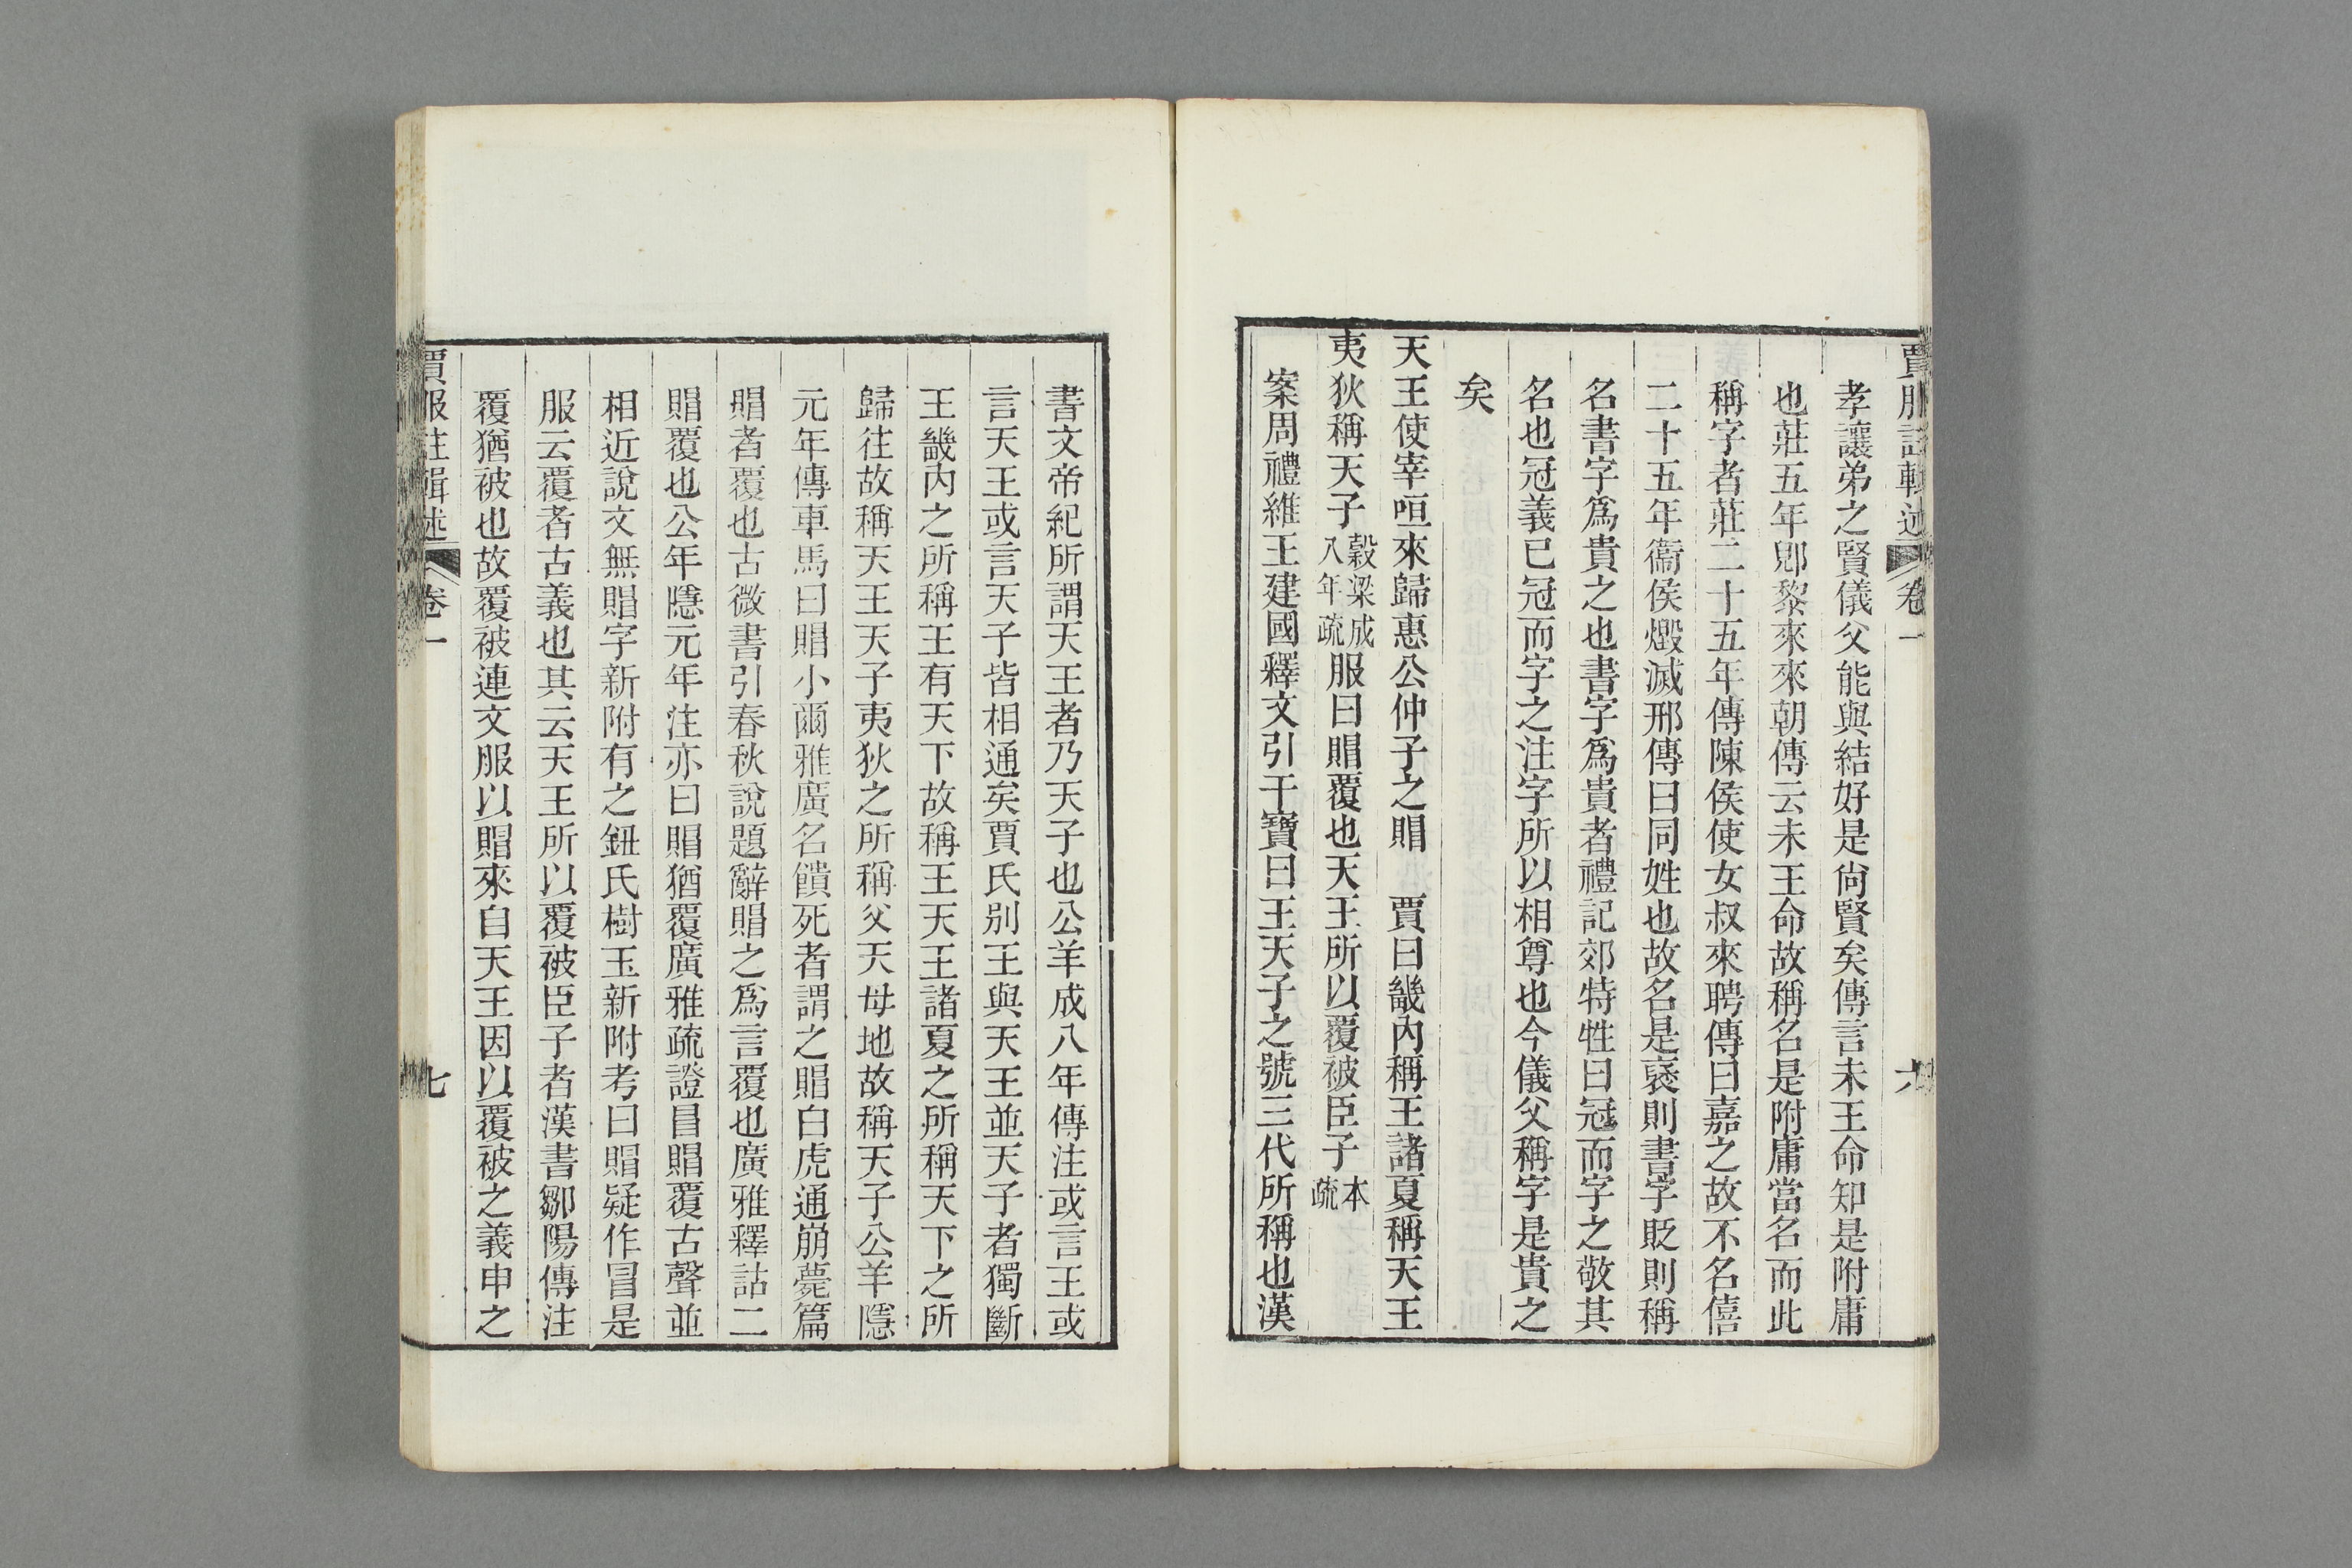 賈服註輯述 卷一 六
孝讓弟之賢儀父能與結好是尚賢矣傳言未王命知是附庸
也莊五年郳黎來來朝傳云未王命故稱名是附庸當名而此
稱字者莊二十五年傳陳侯使女叔來聘傳曰嘉之故不名僖
二十五年衞侯燬滅邢傳曰同姓也故名是襃則書字貶則稱
名書字爲貴之也書字爲貴者禮記郊特牲曰冠而字之敬其
名也冠義已冠而字之注字所以相尊也今儀父稱字是貴之
矣
天王使宰咺來歸惠公仲子之賵 賈曰畿內稱王諸夏稱天王
夷狄稱天子穀梁成八年疏服曰賵覆也天王所以覆被臣子本疏
案周禮維王建國釋文引干寶曰王天子之號三代所稱也漢
書文帝紀所謂天王者乃天子也公羊成八年傳注或言王或
言天王或言天子皆相通矣賈氏別王與天王並天子者獨斷
王畿內之所稱王有天下故稱王天王諸夏之所稱天下之所
歸往故稱天王天子夷狄之所稱父天母地故稱天子公羊隱
元年傳車馬曰賵小爾雅廣名饋死者謂之賵白虎通崩薨篇
賵者覆也古微書引春秋說題辭賵之爲言覆也廣雅釋詁二
賵覆也公年隱元年注亦曰賵猶覆廣雅疏證冒賵覆古聲並
相近說文無賵字新附有之鈕氏樹玉新附考曰賵疑作冒是
服云覆者古義也其云天王所以覆被臣子者漢書鄒陽傳注
覆猶被也故覆被連文服以賵來自天王因以覆被之義申之
賈服註輯述 卷一 七